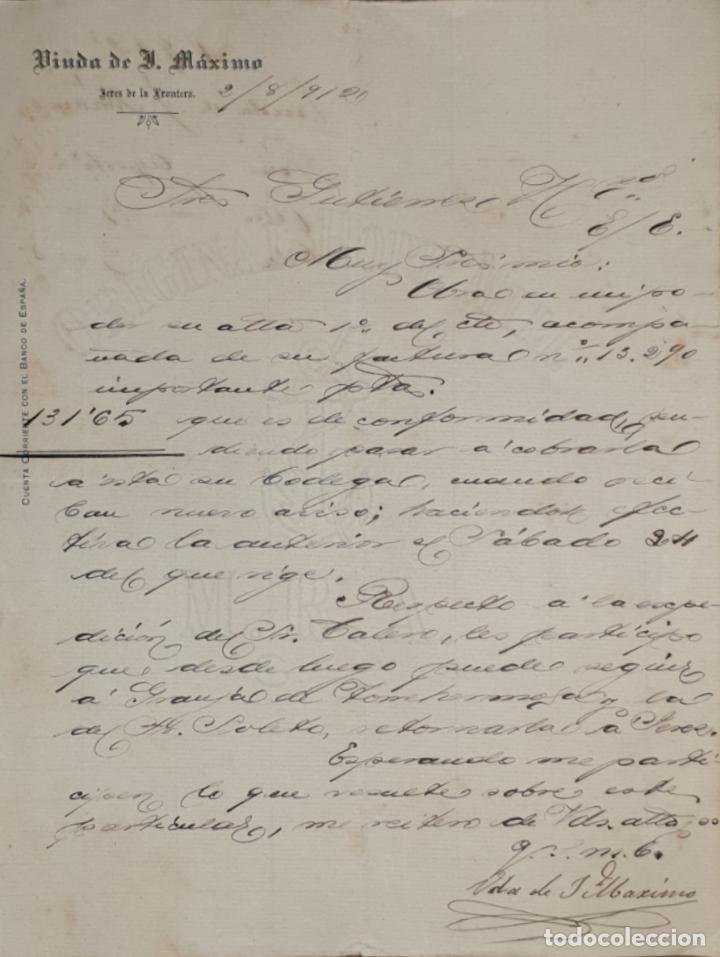 Viuda de J. Máximo
Jerez de la Frontera.
2/8/9120
CUENTA CORRIENTE CON EL BANCO DE ESPAÑA.
Sres Gutierrez H. Cª
E/E.
Muy Sres mio:
Obra en mi po-
der su atta 1º del cte, acompa-
ñada de su factura nº 13.290
importante ptas.
131'65 que es de conformidad, pu-
diendo pasar á cobrarla
á ésta su bodega, cuando reci-
ban nuevo aviso; haciendose efec-
tiva la anterior el Sábado
del que rige.
Respecto á la expe-
dición del Sr. Calero, les participo
que desde luego puede seguir
á Granja de Torrehermosa y la
del Sr. Soleto, retornarla á Jerez.
Esperando me parti-
cipen lo que resulte sobre este
particular, me reitero de Vds. atta ss
q. s. m. b.
Vda de J. Maximo
todocoleccion
todocoleccion.net